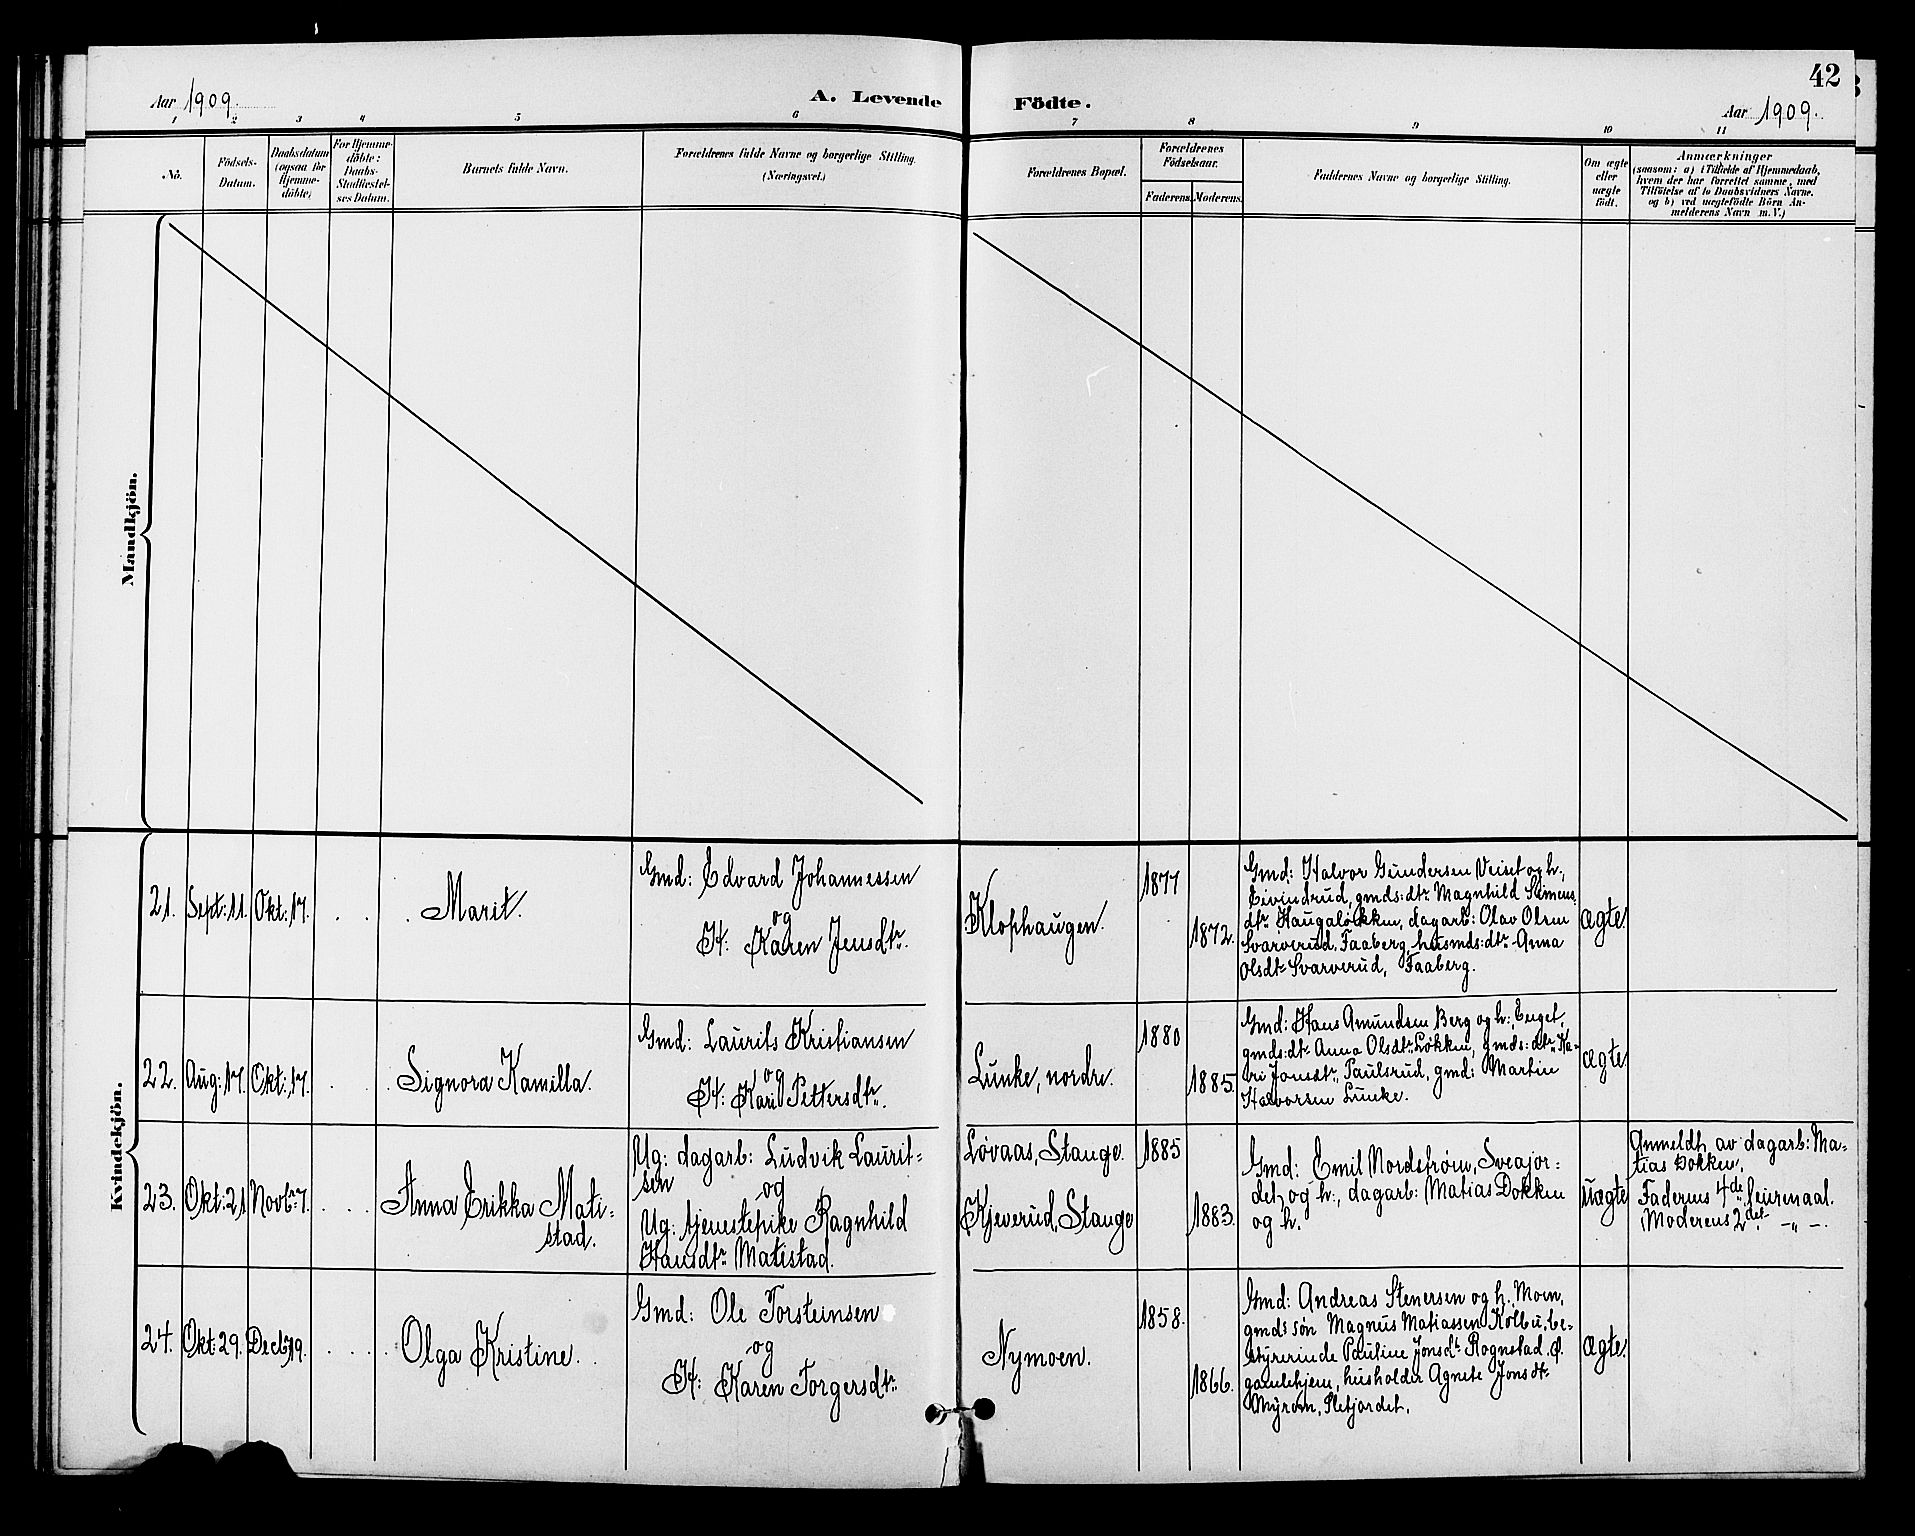 42
Aar 1909.
A. Levende Födte.
Aar 1909.
1 2 3 4 5 6 7 8 9 10 11
No.
Födsels-
Datum.
Daabsdatum
(ogsaa for
Hjemme-
döbte)
For Hjemme-
döbte:
Daabs-
Stadfæstel-
ses Datum.
Barnets fulde Navn.
Forældrenes fulde Navne og borgerlige Stilling.
(Næringsvei.)
Forældrenes Bopæl.
Forældrenes
Födselsaar.
Faderens.
Moderens.
Faddernes Navne og borgerlige Stilling.
Om ægte
eller
uægte
födt.
Anmærkninger
(saasom: a) i Tilfælde af Hjemmedaab,
hvem der har forrettet samme, med
Tilföielse af to Daabsvidners Navne.
og b) ved uægtefödte Börn An-
melderens Navn m. V.)
Mandkjön.
Kvindekjön.
21.
Sept: 11.
Okt: 17.
Marit.
Gmd: Edvard Johannessen
og
H: Karen Jensdtr.
Klophaugen.
1877
1872.
Gmd: Halvor Gundersen Veiset og h.,
Eivindrud, gmds:dtr Magnhild Simens
dtr Haugaløkken, dagarb: Olav Olsen
Svarverud, Faaberg, husmds:dtr Anna
Olsdtr Svarverud, Faaberg.
ægte.
22.
Aug: 17.
Okt: 17.
Signora Kamilla.
Gmd: Laurits Kristiansen
og
H: Kari Pettersdtr.
Lunke, nordre.
1880
1885.
Gmd: Hans Amundsen Berg og h:, Enget,
gmds:dtr Anna Olsdtr Løkken, gmds:dtr Ka-
ri Jonsdtr Paulsrud, gmd: Martin
Halvorsen Lunke.
ægte.
23.
Okt: 21
Novbr 7.
Anna Erikka Mati-
stad.
Ug: dagarb: Ludvik Laurit-
sen
og
Ug: tjenestepike Ragnhild
Hansdtr Matistad.
Løvaas, Stange.
Kjeverud, Stange
1885
1883.
Gmd: Emil Nordstrøm, Sveajor-
det og h., dagarb: Matias Dokken
og h.
uægte
Anmeldt av dagarb: Ma-
tias Dokken.
Faderens 4de leiermaal.
Moderens 2det -„-.
24.
Okt: 29.
Decbr 19.
Olga Kristine.
Gmd: Ole Torsteinsen
og
H: Karen Torgersdtr.
Nymoen.
1858.
1866.
Gmd: Andreas Stenersen og h. Moen,
gmds søn Magnus Matiassen Kolbu, be-
styrerinde Pauline Jonsdtr Rognstad. Ø.
gamlehjem, husholder Agnete Jonsdtr
Myrom, Sletjordet.
ægte.